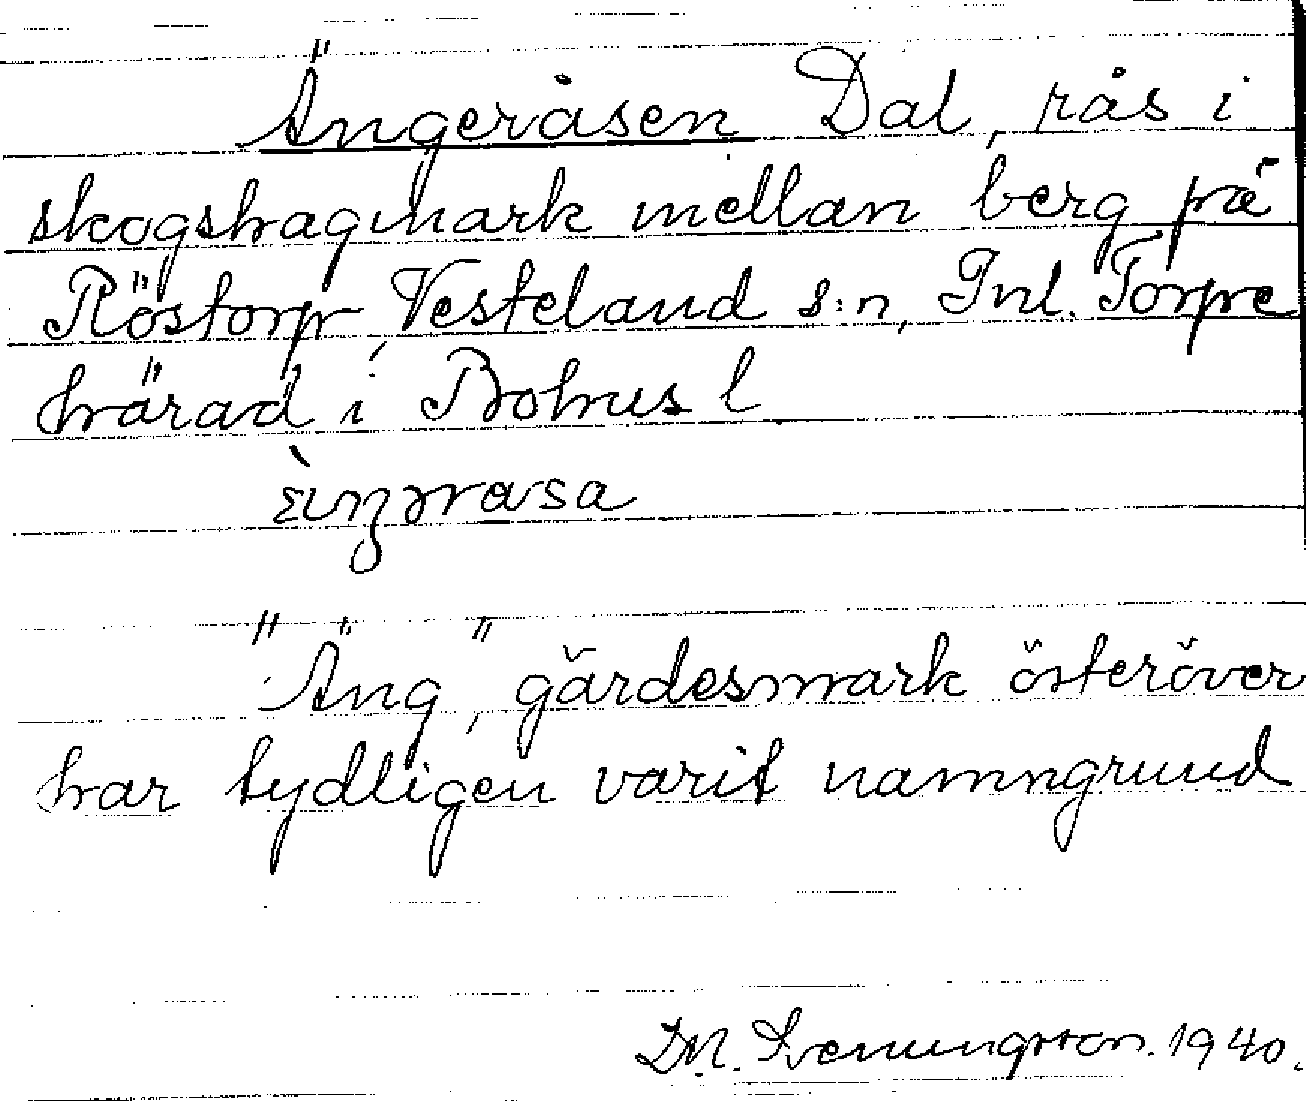 Ängeråsen Dal, rås i
skogshagmark mellan berg på
Röstorp, Vesteland s:n, Inl. Torpe
härad i Bohus l
"Äng", gärdesmark österöver
har tydligen varit namngrund
D.N. Svenungsson. 1940.